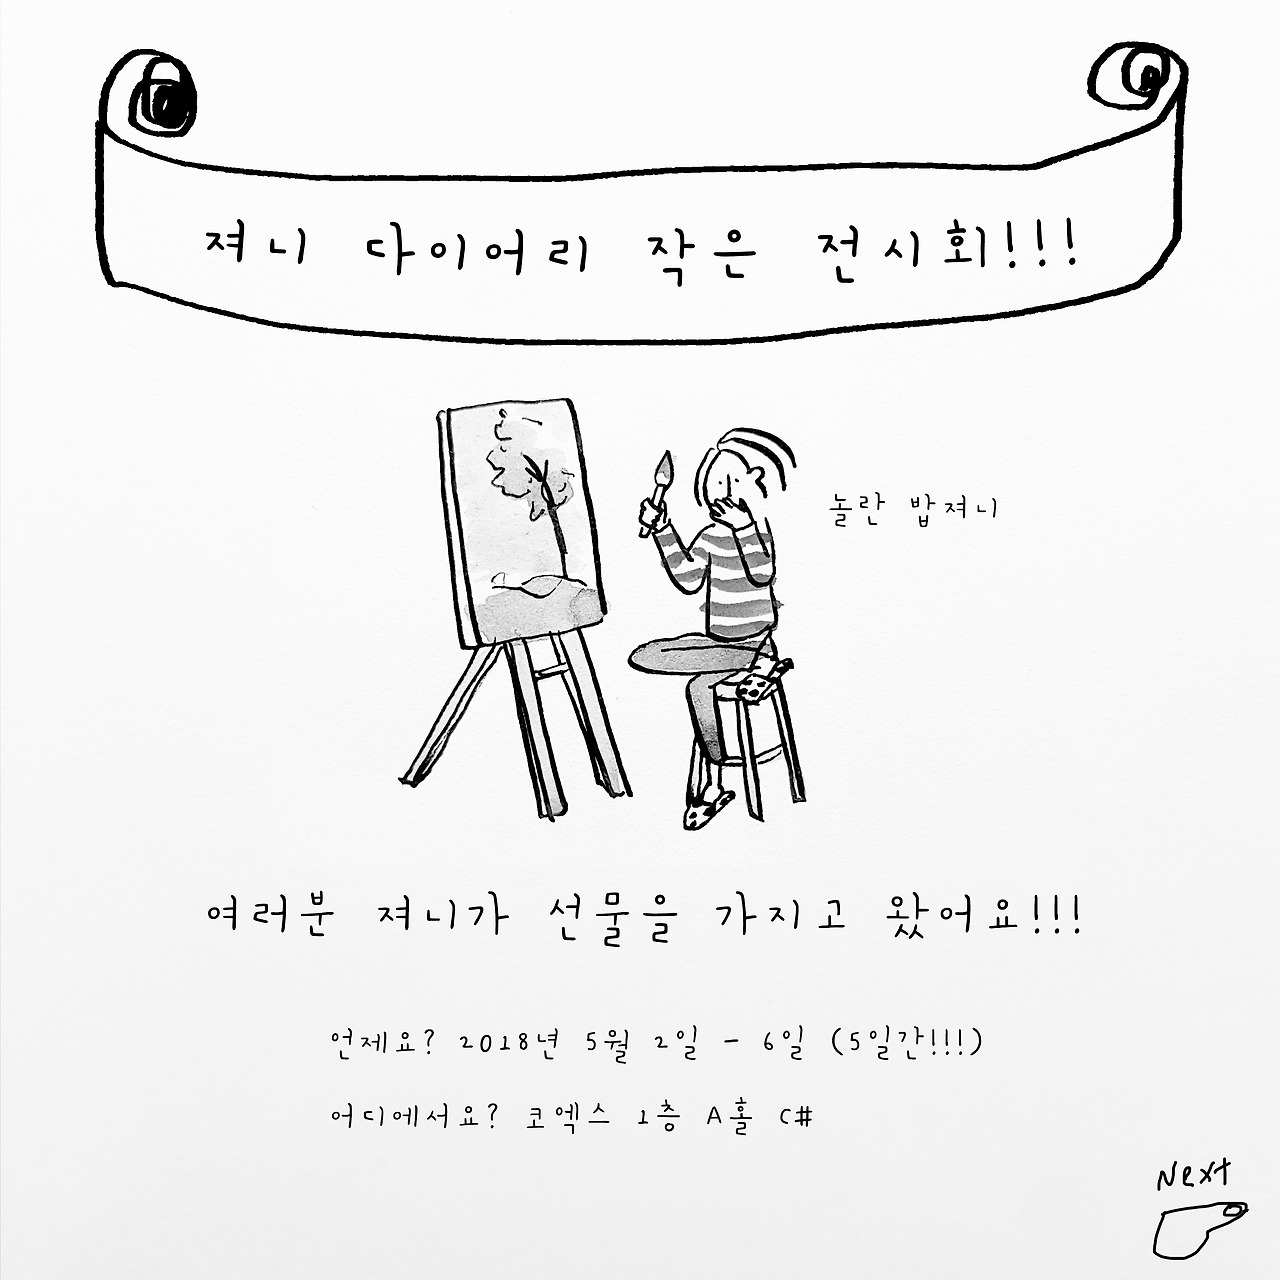 져니 다이어리 작은 전시회!!!
놀란 밥져니
여러분 져니가 선물을 가지고 왔어요!!!
언제요? 2018년 5월 2일 - 6일 (5일간!!!)
어디에서요? 코엑스 1층 A홀 C#
Next